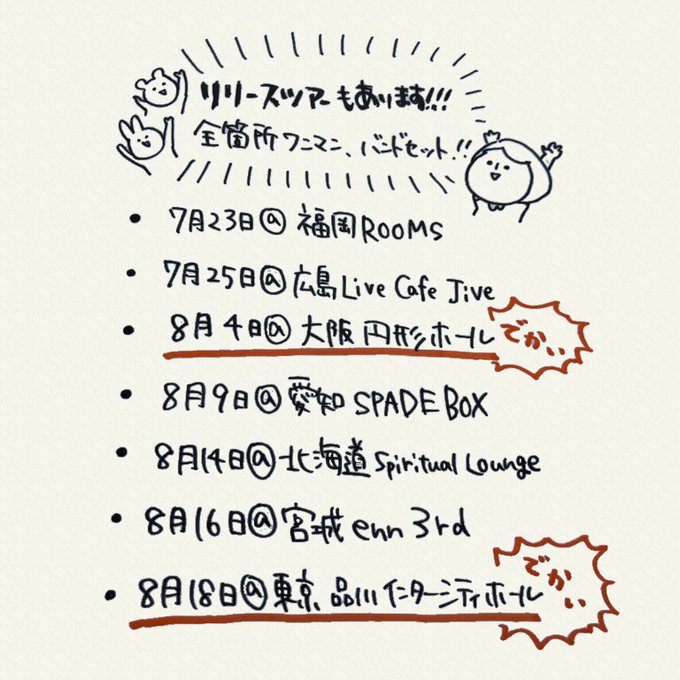 リリースツアーもあります!!!
全箇所ワンマン、バンドセット!!
・7月23日@福岡ROOMS
・7月25日@広島Live Cafe Jive
・8月4日@大阪円形ホール
でかい
・8月9日@愛知SPADE BOX
・8月14日@北海道Spiritual Lounge
・8月16日@宮城enn 3rd
・8月18日@東京、品川インターシティホール
でかい